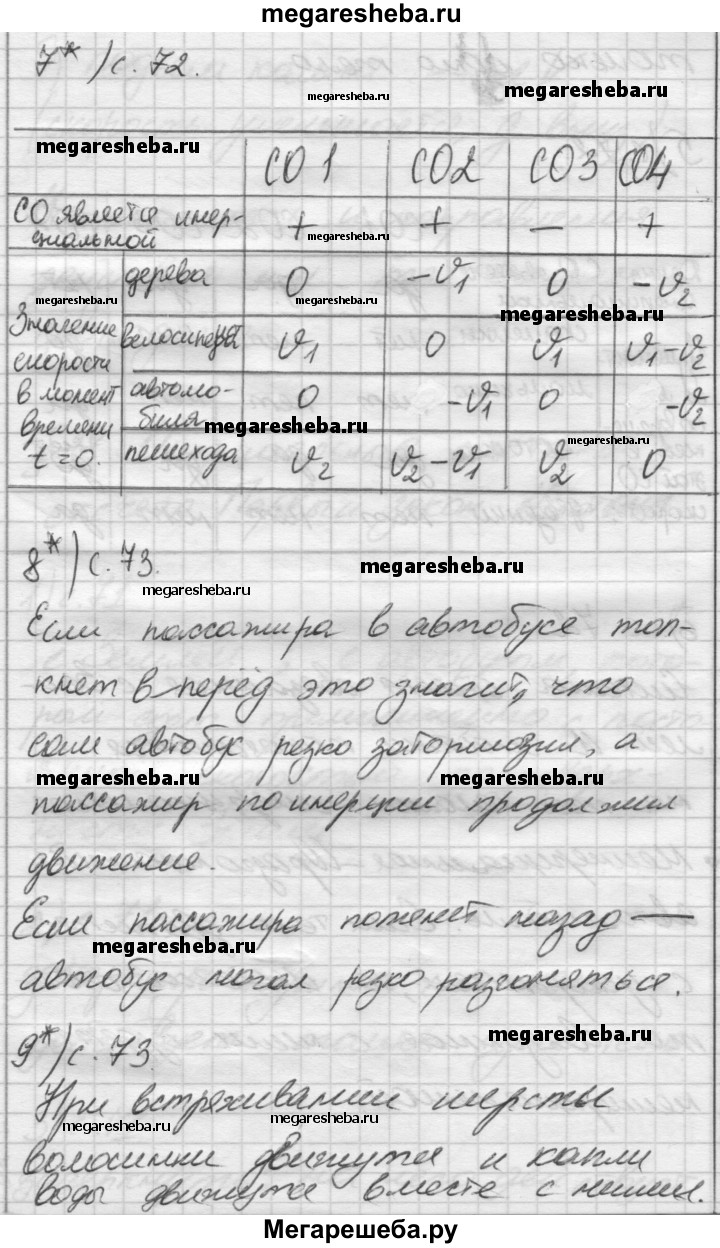 megaresheba.ru
7*) с. 72.
megaresheba.ru
megaresheba.ru
megaresheba.ru
СО 1 СО2 СО3 СО4
СО является инер-
циальной + + — +
megaresheba.ru
Значение скорости в момент времени t = 0.
дерева 0 -v1 0 -v2
megaresheba.ru
megaresheba.ru
megaresheba.ru
велосипеда v1 0 v1 v1-v2
автомо-
биля 0 -v1 0 -v2
megaresheba.ru
megaresheba.ru
пешехода v2 v2-v1 v2 0
8*) с. 73.
megaresheba.ru
megaresheba.ru
Если пассажира в автобусе тол-
кнет в перёд это значит, что
сам автобус резко затормозил, а
megaresheba.ru
megaresheba.ru
пассажир по инерции продолжил
движение.
Если пассажира потянет назад —
megaresheba.ru
автобус начал резко разгоняться.
9*) с. 73.
megaresheba.ru
При встряхивании шерсты
megaresheba.ru
megaresheba.ru
волосинки движутся и капли
воды движутся вместе с ними.
Мегарешеба.ру